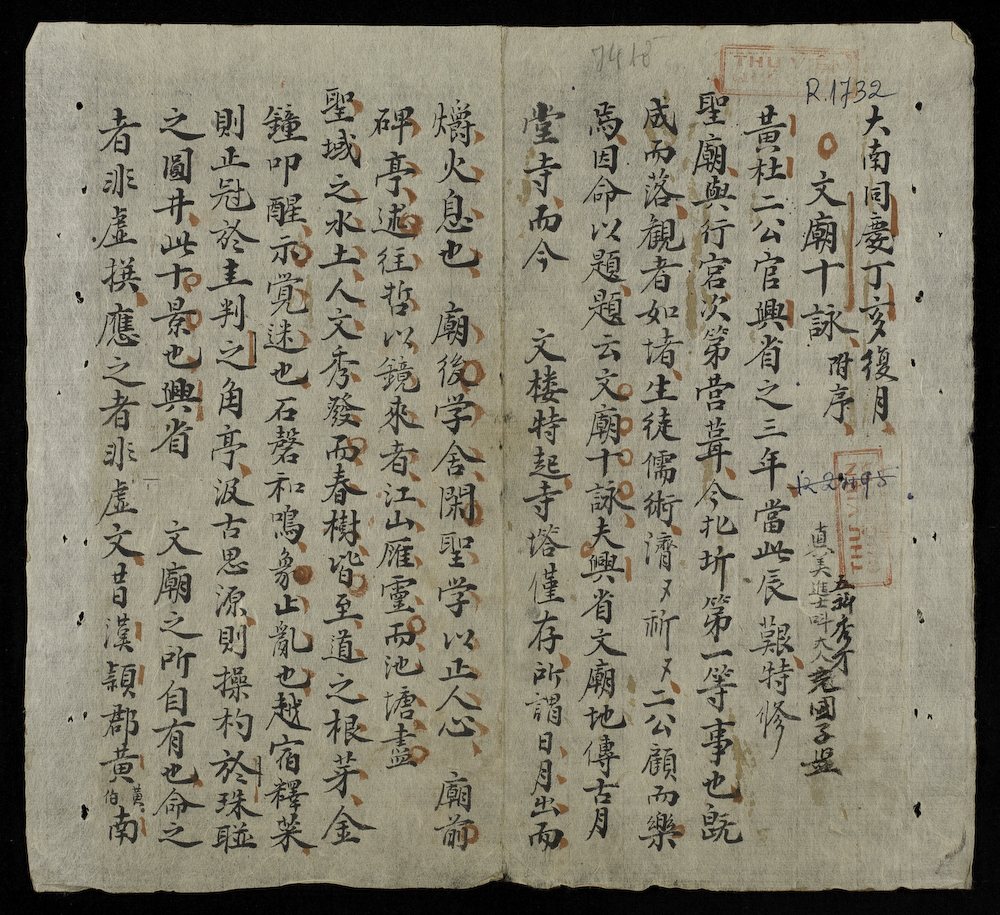 7418
THU VIEN
R.1732
大南同慶丁亥復月
文廟十詠附序
真美進士科大人充國子監
五科秀才
黄杜二公官興省之三年當此辰艱特修
聖廟與行宫次第营葺今北圻第一等事也既
成而落観者如堵生徒儒術濟〻祈〻二公顧而樂
焉因命以題題云文廟十詠夫興省文廟地傳古月
堂寺而今 文楼特起寺塔僅存所謂日月出而
爝火息也 廟後学舍閑聖学以止人心 廟前
碑亭述往哲以鏡來者江山雁靈而池塘盡
聖域之水土人文秀發而春樹皆至道之根芽金
鐘叩醒示覚迷也石磬和鳴象止亂也越宿釋菜
則正冠於圭判之角亭汲古思源則操杓於珠聯
之圓井此十景也興省 文廟之所自有也命之
者非虚撰應之者非虚文昔漢潁郡黄黄伯南